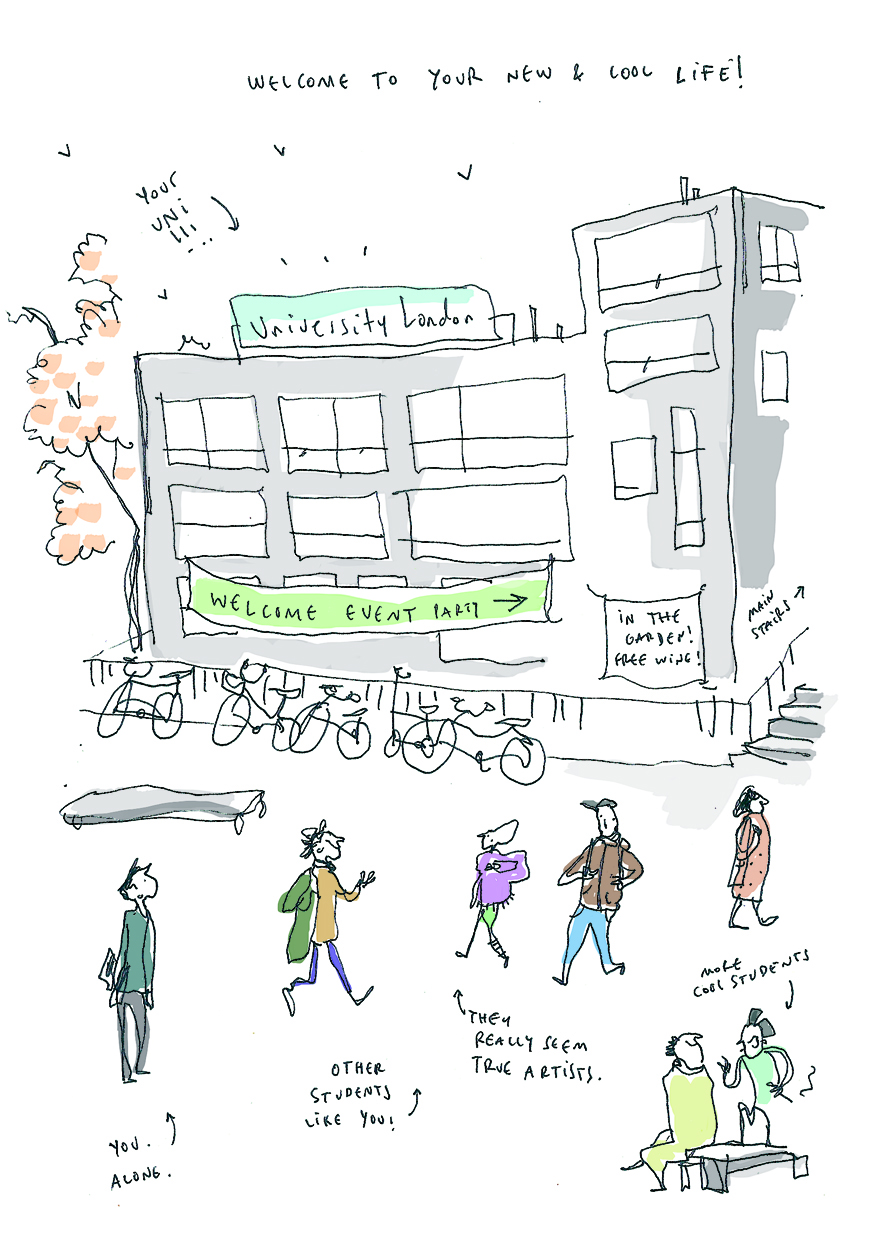 WELCOME TO YOUR NEW & COOL LIFE!
YOUR
UNI
!!!...
University London
WELCOME EVENT PARTY →
IN THE
GARDEN!
FREE WINE!
MAIN
STAIRS
MORE
COOL STUDENTS
THEY
REALLY SEEM
TRUE ARTISTS.
OTHER
STUDENTS
LIKE YOU!
YOU.
ALONE.